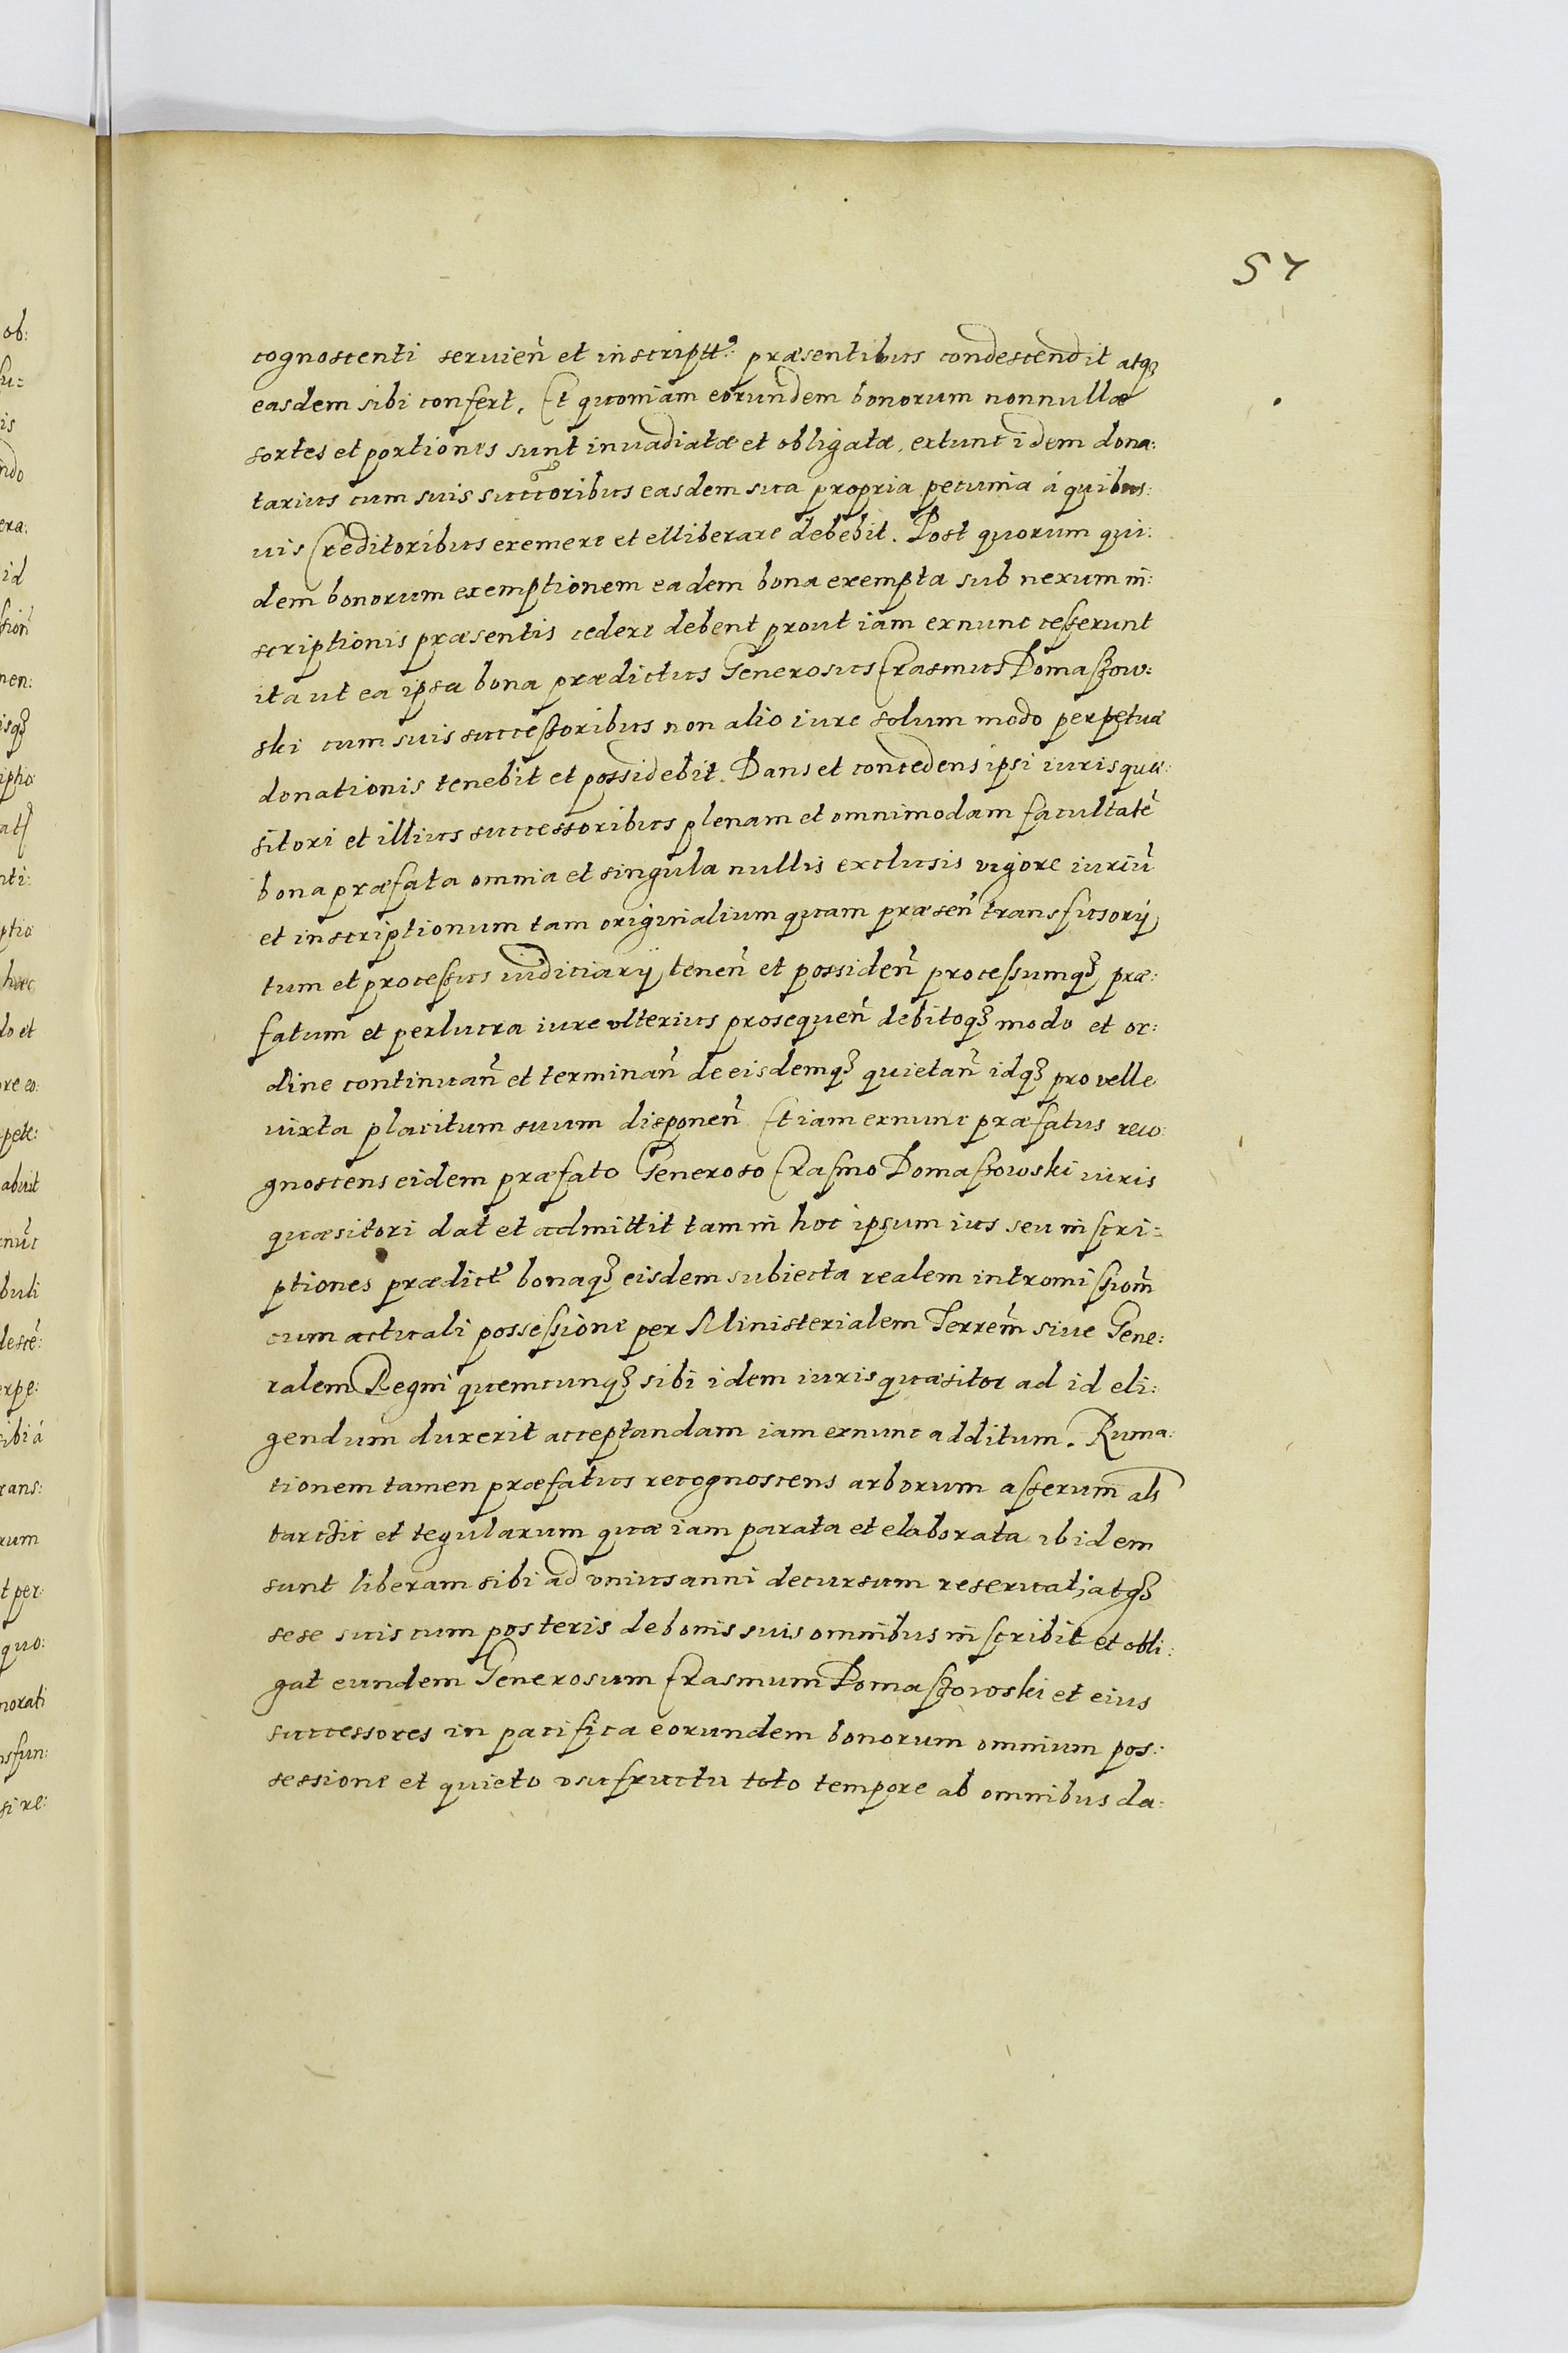 57
cognoscenti seruien̄ et inscriptt: præsentibus condescendit atqꝫ
easdem sibi confert. Et quoniam eorundem bonorum nonnullæ
sortes et portiones sunt inuadiatæ et obligatæ, extunc idem dona:
tarius cum suis succoribus easdem sua propria pecunia á quibus:
uis Creditoribus exemere et elliberare debebit. Post quorum qui:
dem bonorum exemptionem eadem bona exempta sub nexum in:
scriptionis præsentis cedere debent prout iam exnunc cesserunt
ita ut ea ipsa bona prædictus Generosus Erasmus Domaszow:
ski cum suis successoribus non alio iure solum modo perpetuæ
donationis tenebit et possidebit. Dans et concedens ipsi iuris quæ:
sitori et illius successoribus plenam et omnimodam facultatē
bona præfata omnia et singula nullis exclusis vigore iuriū
et inscriptionum tam originalium quam præsen̄ transfusorÿ
tum et processus iudiciarÿ tenen̄ et possiden̄ processumqꝫ præ:
fatum et perlucra iure vlterius prosequen̄ debitoqꝫ modo et or:
dine continuan̄ et terminan̄ de eisdemqꝫ quietan̄ idqꝫ pro velle
iuxta placitum suum disponen̄ Et iam exnunc præfatus reco:
gnoscens eidem præfato Generoso Erasmo Domaszowski iuris
quæsitori dat et admittit tam in hoc ipsum ius seu inscri:
ptiones prædict bonaqꝫ eisdem subiecta realem intromissiom̄
cum actuali possessione per Ministerialem Terrem̄ siue Gene:
ralem Regni quemcunqꝫ sibi idem iuris quæsitor ad id eli:
gendum duxerit acceptandam iam exnunc additum. Ruma:
tionem tamen præfatus recognoscens arborum asserum als
tarczic et tegularum quæ iam parata et elaborata ibidem
sunt liberam sibi ad vnius anni decursum reseruat, atqꝫ
sese suis cum posteris de bonis suis omnibus inscribit et obli:
gat eundem Generosum Erasmum Domaszowski et eius
successores in pacifica eorundem bonorum omnium pos:
sessione et quieto vsufructu toto tempore ab omnibus da: